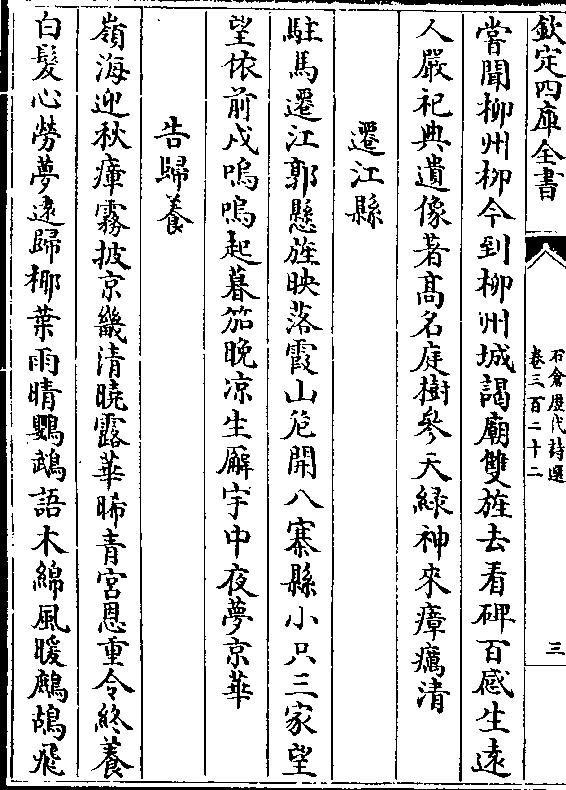 欽定四庫全書
石倉歷代詩選
卷三百二十二
三
嘗聞柳州柳今到柳州城謁廟雙旌去看碑百感生遠
人嚴祀典遺像著高名庭樹參天緑神來瘴癘清
遷江縣
駐馬遷江郭懸旌映落霞山危開八寨縣小只三家望
望依前戍嗚嗚起暮笳晚凉生廨宇中夜夢京華
告歸養
嶺海迎秋瘴霧披京畿清曉露華晞青宮恩重令終養
白髮心勞夢逺歸椰葉雨晴鸚鵡語木綿風暖鷓鴣飛